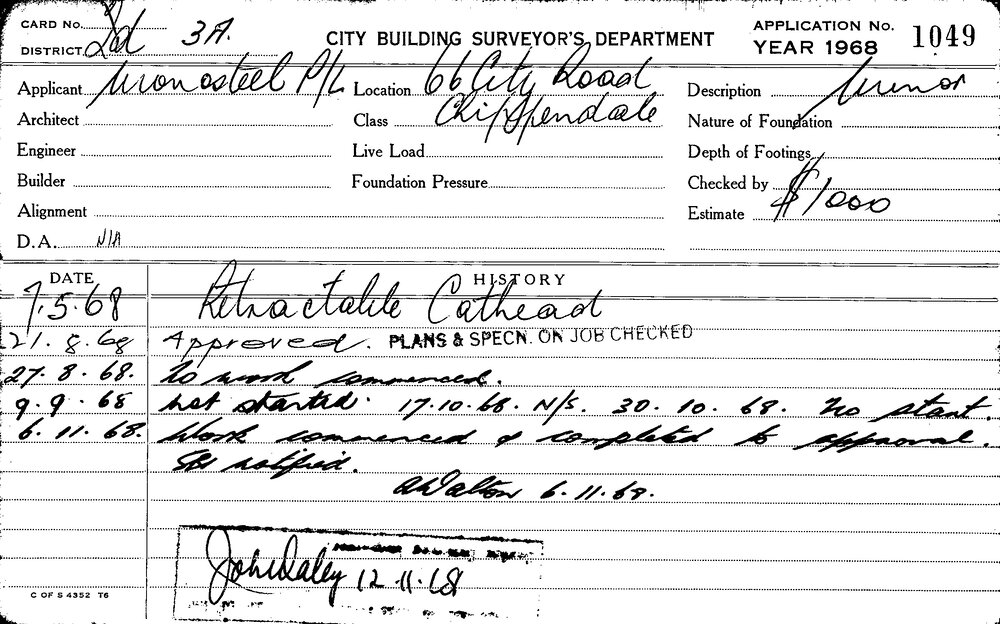 CARD No.
DISTRICT 2nd 3A.
CITY BUILDING SURVEYOR'S DEPARTMENT
APPLICATION No. 1049
YEAR 1968
Applicant Wronosteel P/L Location 66 City Road Description Minor
Architect Class Chippendale Nature of Foundation
Engineer Live Load Depth of Footings
Builder Foundation Pressure Checked by
Alignment Estimate $1000
D.A. N/A
DATE HISTORY
7.5.68 Retractable Cathead
21.8.68 Approved. PLANS & SPECN. ON JOB CHECKED
27.8.68. No work commenced.
9.9.68 Not started. 17.10.68. N/S. 30.10.68. No start.
6.11.68. Work commenced & completed to approval.
notified.
AWalton 6.11.68.
John Daley 12.11.68
C OF S 4352 T6